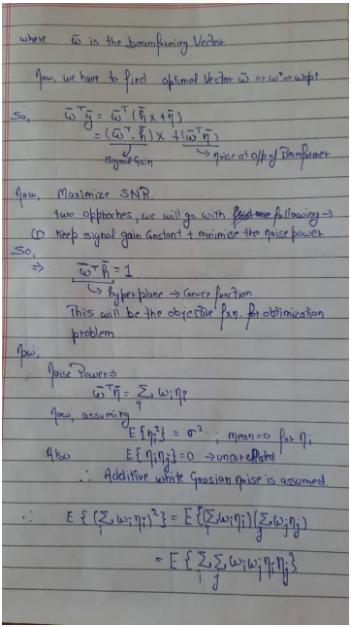 where w̄ is the beamforming Vector.
Now, we have to find optimal Vector w̄ or w* or wopt
So, w̄ᵀȳ = w̄ᵀ(h̄x + η̄)
= (w̄ᵀ.h̄)x + (w̄ᵀη̄)
Signal Gain → Noise at o/p of Beamformer
Now, Maximize SNR.
two approches, we will go with following →
① Keep signal gain Constant + minimise the noise power
So,
⇒ w̄ᵀh̄ = 1
↳ hyperplane → Convex function
This will be the objective fxn. for obtimization
problem
Now,
Noise Power⇒
w̄ᵀη̄ = Σᵢ wᵢηᵢ
Now, assuming
E{ηᵢ²} = σ² ; mean=0 for ηᵢ
Also E{ηᵢηⱼ}=0 → uncorelated
∴ Additive white Gausian noise is assumed.
∴ E{(Σᵢ wᵢηᵢ)²} = E{(Σᵢ wᵢηᵢ)(Σⱼ wⱼηⱼ)}
= E{Σᵢ Σⱼ wᵢwⱼηᵢηⱼ}